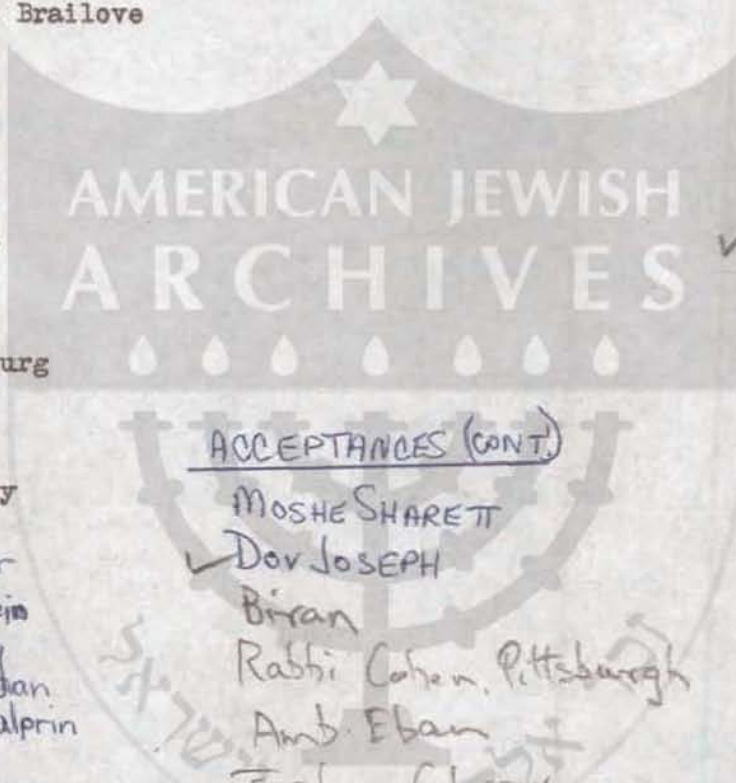 Brailove
AMERICAN JEWISH
ARCHIVES
urg
ACCEPTANCES (CONT.)
y
MOSHE SHARETT
✓ DOV JOSEPH
Biran
Rabbi Cohen, Pittsburgh
Amb. Eban
alprin